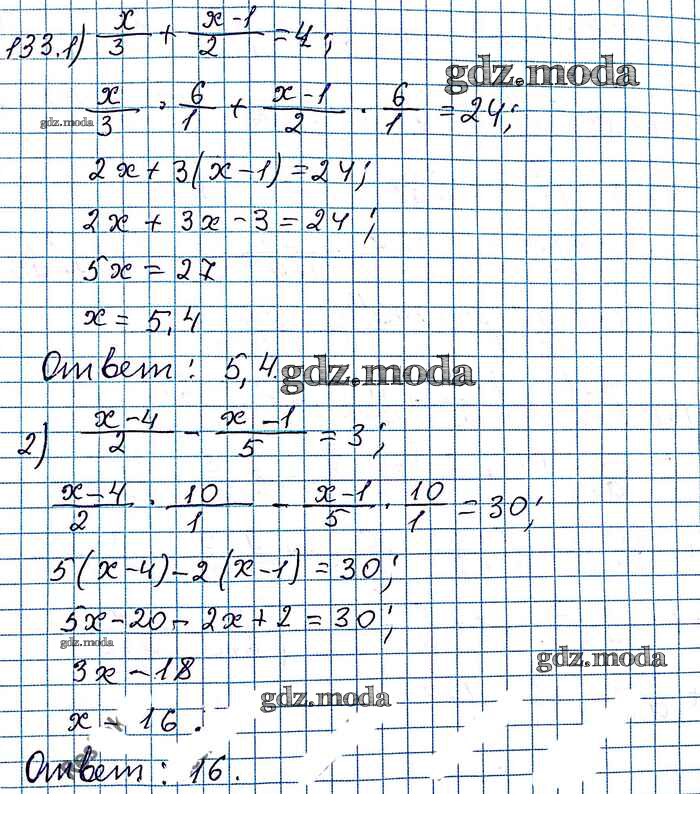 133.1) x/3 + x-1/2 = 4;
gdz.moda
x/3 · 6/1 + x-1/2 · 6/1 = 24;
gdz.moda
2x + 3(x-1) = 24;
2x + 3x - 3 = 24;
5x = 27
x = 5,4
Ответ: 5,4.
gdz.moda
2) x-4/2 - x-1/5 = 3;
x-4/2 · 10/1 - x-1/5 · 10/1 = 30;
5(x-4)-2(x-1) = 30;
5x-20-2x+2 = 30;
gdz.moda
3x - 18
gdz.moda
gdz.moda
x - 16.
Ответ: 16.